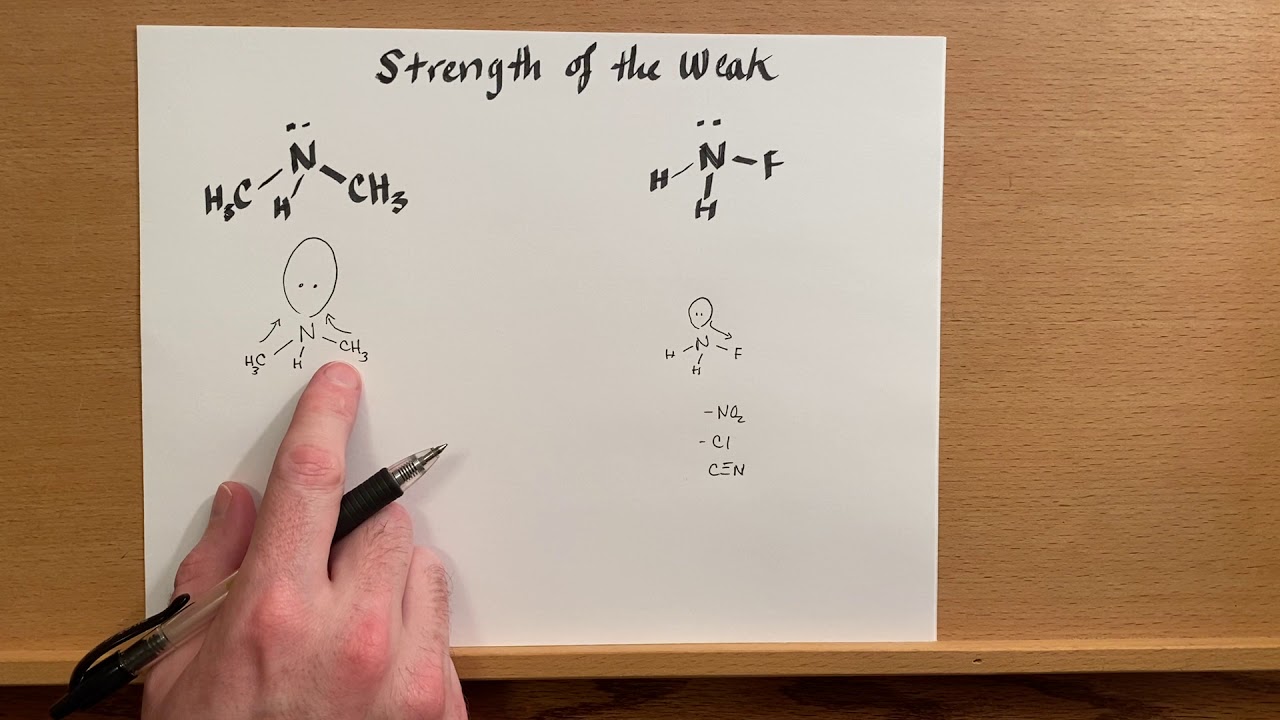 Strength of the Weak
N
H₃C H CH₃
N
H₃C H CH₃
N
H F
H
N
H F
H
-NO₂
-Cl
C≡N